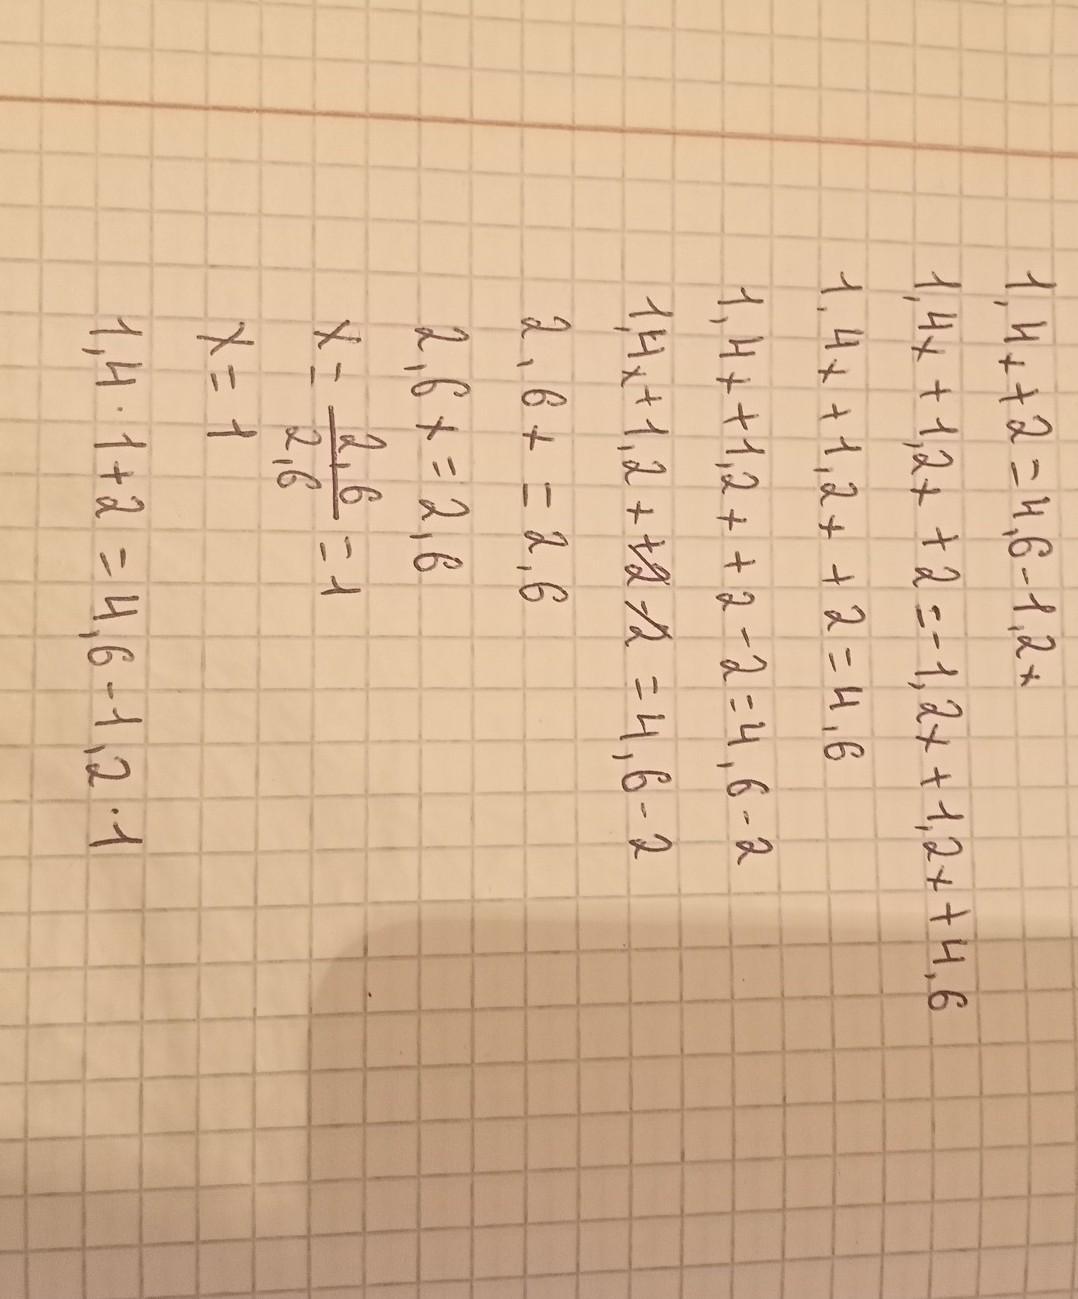 1,4x+2=4,6-1,2x
1,4x+1,2x+2=-1,2x+1,2x+4,6
1,4x+1,2x+2=4,6
1,4x+1,2x+2-2=4,6-2
1,4x+1,2x+2-2=4,6-2
2,6x=2,6
2,6x=2,6
x=2,6/2,6=1
x=1
1,4·1+2=4,6-1,2·1